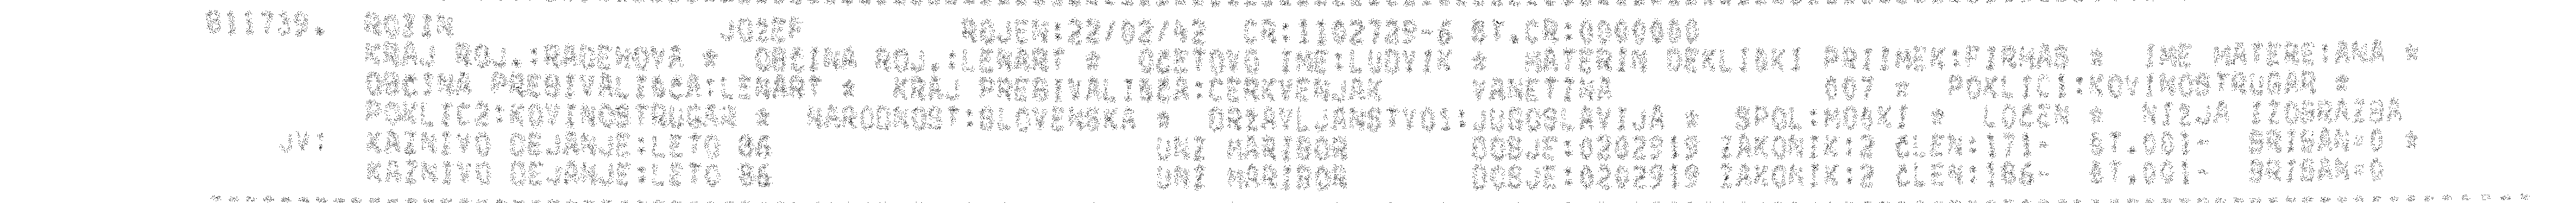 611739. ROZIN JOZEF ROJEN:22/02/42 CR:1102729-6 ST.CR:0000000
KRAJ ROJ.:RADEHOVA * OBCINA ROJ.:LENART * OCETOVO IME:LUDVIK * MATERIN DEKLISKI PRIIMEK:FIRMAS * IME MATERE:ANA *
OBCINA PREBIVALISCA:LENART * KRAJ PREBIVALISCA:CERKVENJAK VANETINA 007 * POKLIC1:KOVINOSTRUGAR *
POKLIC2:KOVINOSTRUGAR * NARODNOST:SLOVENSKA * DRZAVLJANSTVO1:JUGOSLAVIJA * SPOL:MOSKI * LOCEN * NIZJA IZOBRAZBA
JV: KAZNIVO DEJANJE:LETO 86 UNZ MARIBOR DOSJE:0202919 ZAKONIK:2 CLEN:171- ST.001- BRISAN=0 *
KAZNIVO DEJANJE:LETO 86 UNZ MARIBOR DOSJE:0202919 ZAKONIK:2 CLEN:186- ST.001- BRISAN=0